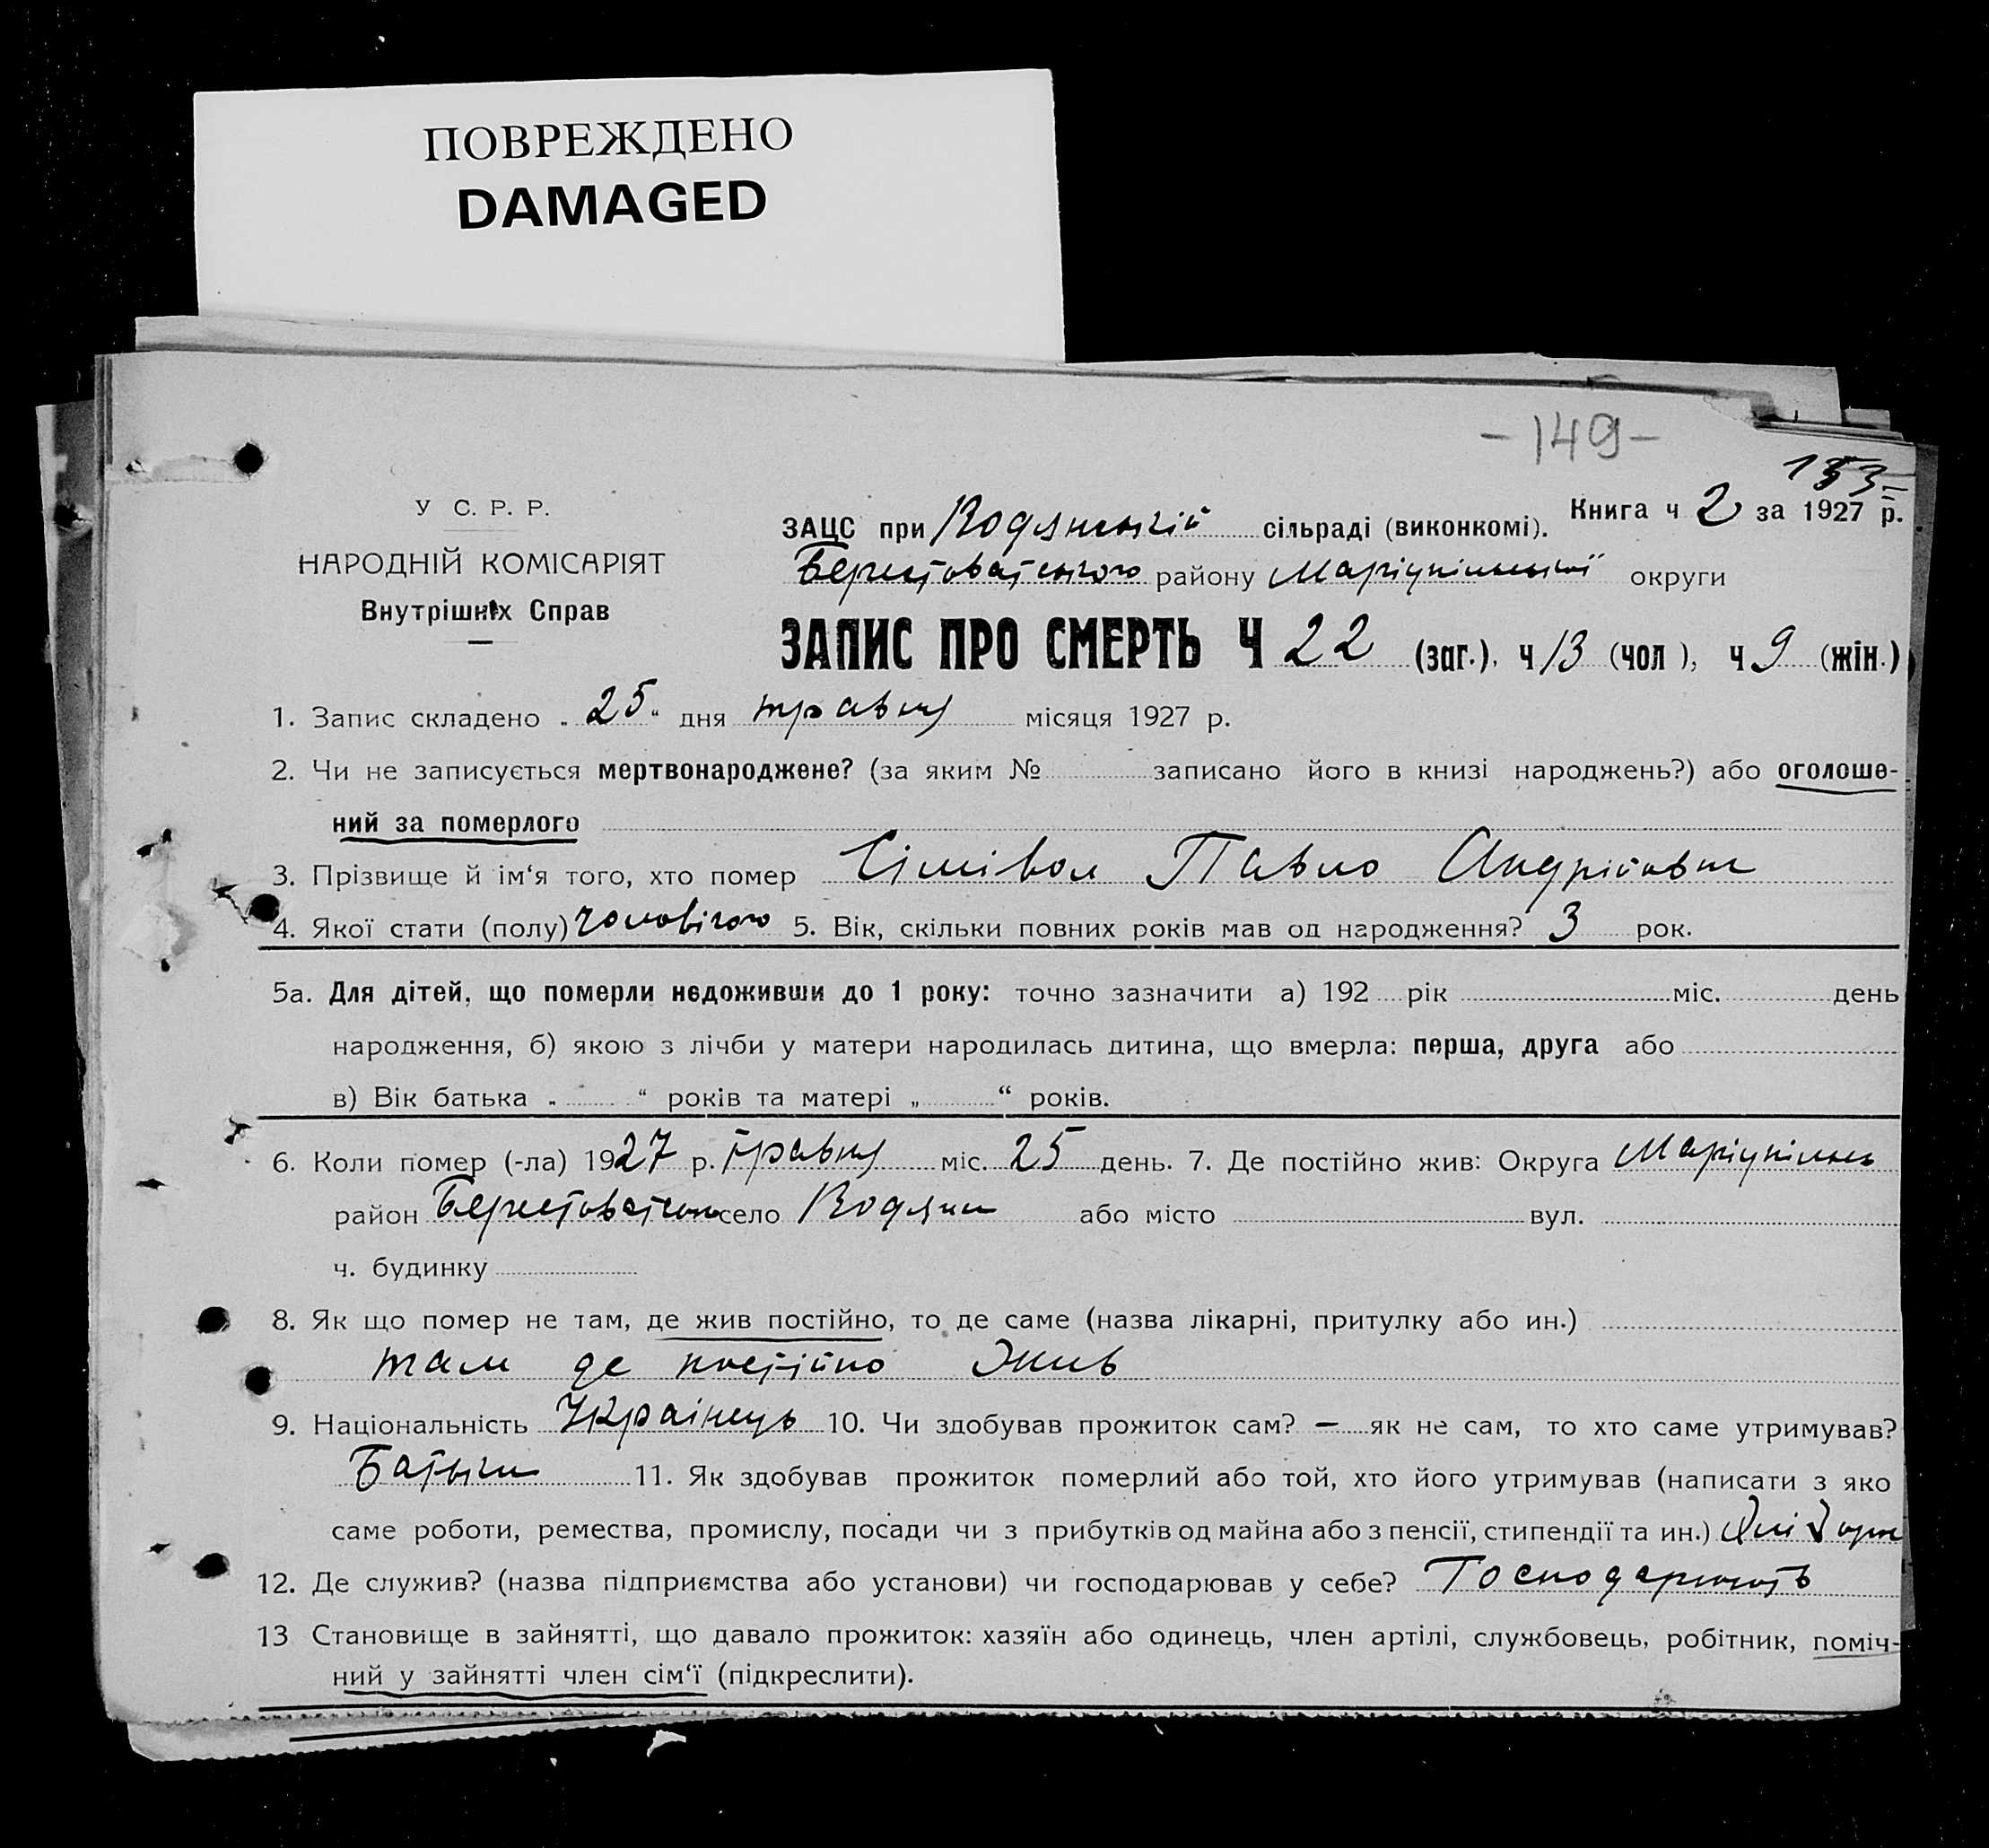 ПОВРЕЖДЕНО
DAMAGED
-149-
153
У С. Р. Р.
НАРОДНІЙ КОМІСАРІЯТ
Внутрішніх Справ
Книга ч 2 за 1927 р.
ЗАЦС при Водянській сільраді (виконкомі).
Берестоватського району Маріупільської округи
ЗАПИС ПРО СМЕРТЬ Ч 22 (заг.), ч 13 (чол), ч 9 (жін.)
1. Запис складено „ 25 “ дня травня місяця 1927 р.
2. Чи не записується мертвонароджене? (за яким № записано його в книзі народжень?) або оголоше-
ний за померлого
3. Прізвище й ім‘я того, хто помер Сімівол Павло Андрійович
4. Якої стати (полу) чоловічого 5. Вік, скільки повних років мав од народження? 3 рок.
5а. Для дітей, що померли недоживши до 1 року: точно зазначити а) 192 рік міс. день
народження, б) якою з лічби у матери народилась дитина, що вмерла: перша, друга або
в) Вік батька „ “ років та матері „ “ років.
6. Коли помер (-ла) 1927 р. травня міс. 25 день. 7. Де постійно жив: Округа Маріупільсь
район Берестоватсько село Водяни або місто вул.
ч. будинку
8. Як що помер не там, де жив постійно, то де саме (назва лікарні, притулку або ин.)
там де постійно жив
9. Національність Українець 10. Чи здобував прожиток сам? — як не сам, то хто саме утримував?
Батьки 11. Як здобував прожиток померлий або той, хто його утримував (написати з яко
саме роботи, ремества, промислу, посади чи з прибутків од майна або з пенсії, стипендії та ин.)
12. Де служив? (назва підприємства або установи) чи господарював у себе? Господарюють
13 Становище в зайнятті, що давало прожиток: хазяїн або одинець, член артілі, службовець, робітник, поміч-
ний у зайнятті член сім‘ї (підкреслити).